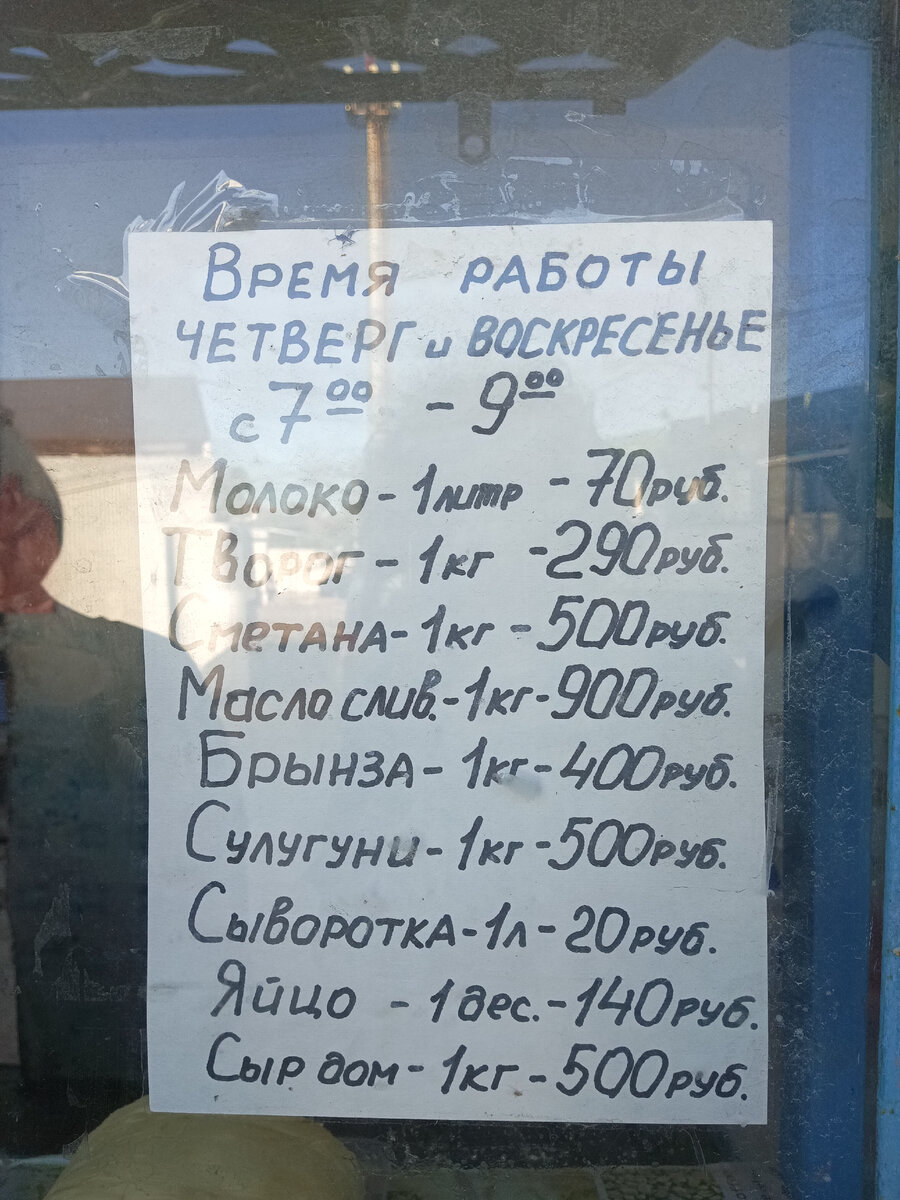 Время работы
четверг и воскресенье
с 7⁰⁰ - 9⁰⁰
Молоко - 1 литр - 70 руб.
Творог - 1 кг - 290 руб.
Сметана - 1 кг - 500 руб.
Масло слив. - 1 кг - 900 руб.
Брынза - 1 кг - 400 руб.
Сулугуни - 1 кг - 500 руб.
Сыворотка - 1 л - 20 руб.
Яйцо - 1 дес. - 140 руб.
Сыр дом - 1 кг - 500 руб.